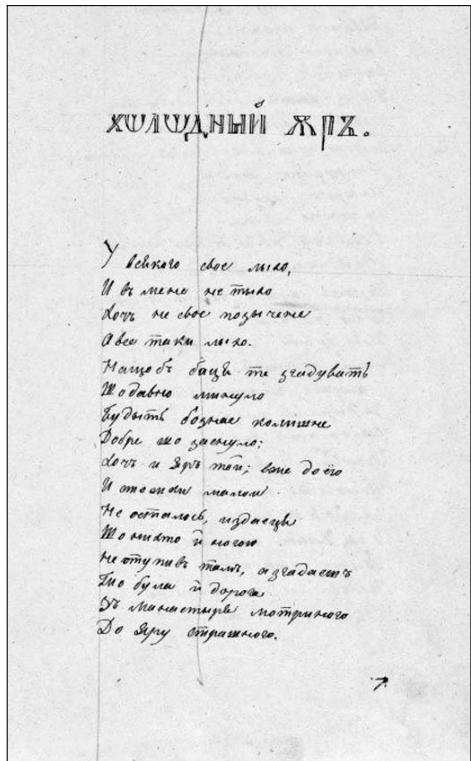 ХѠЛѠДНЫЙ ѪРЪ.
У всякого свое лыхо,
И въ мене не тыхо
Хочъ не свое позычене
А все таки лыхо.
Нащобъ бацця те згадувать
Що давно минуло
Будыть бозная колишне
Добре що заснуло;
Хочъ и Яръ той; вже до ёго
И стежки малои
Не осталось, издаеця
Що нихто й ногою
Не ступивъ тамъ, а згадаешъ
То була й дорога
Зъ манастыря мотриного
До Яру страшного.
7.